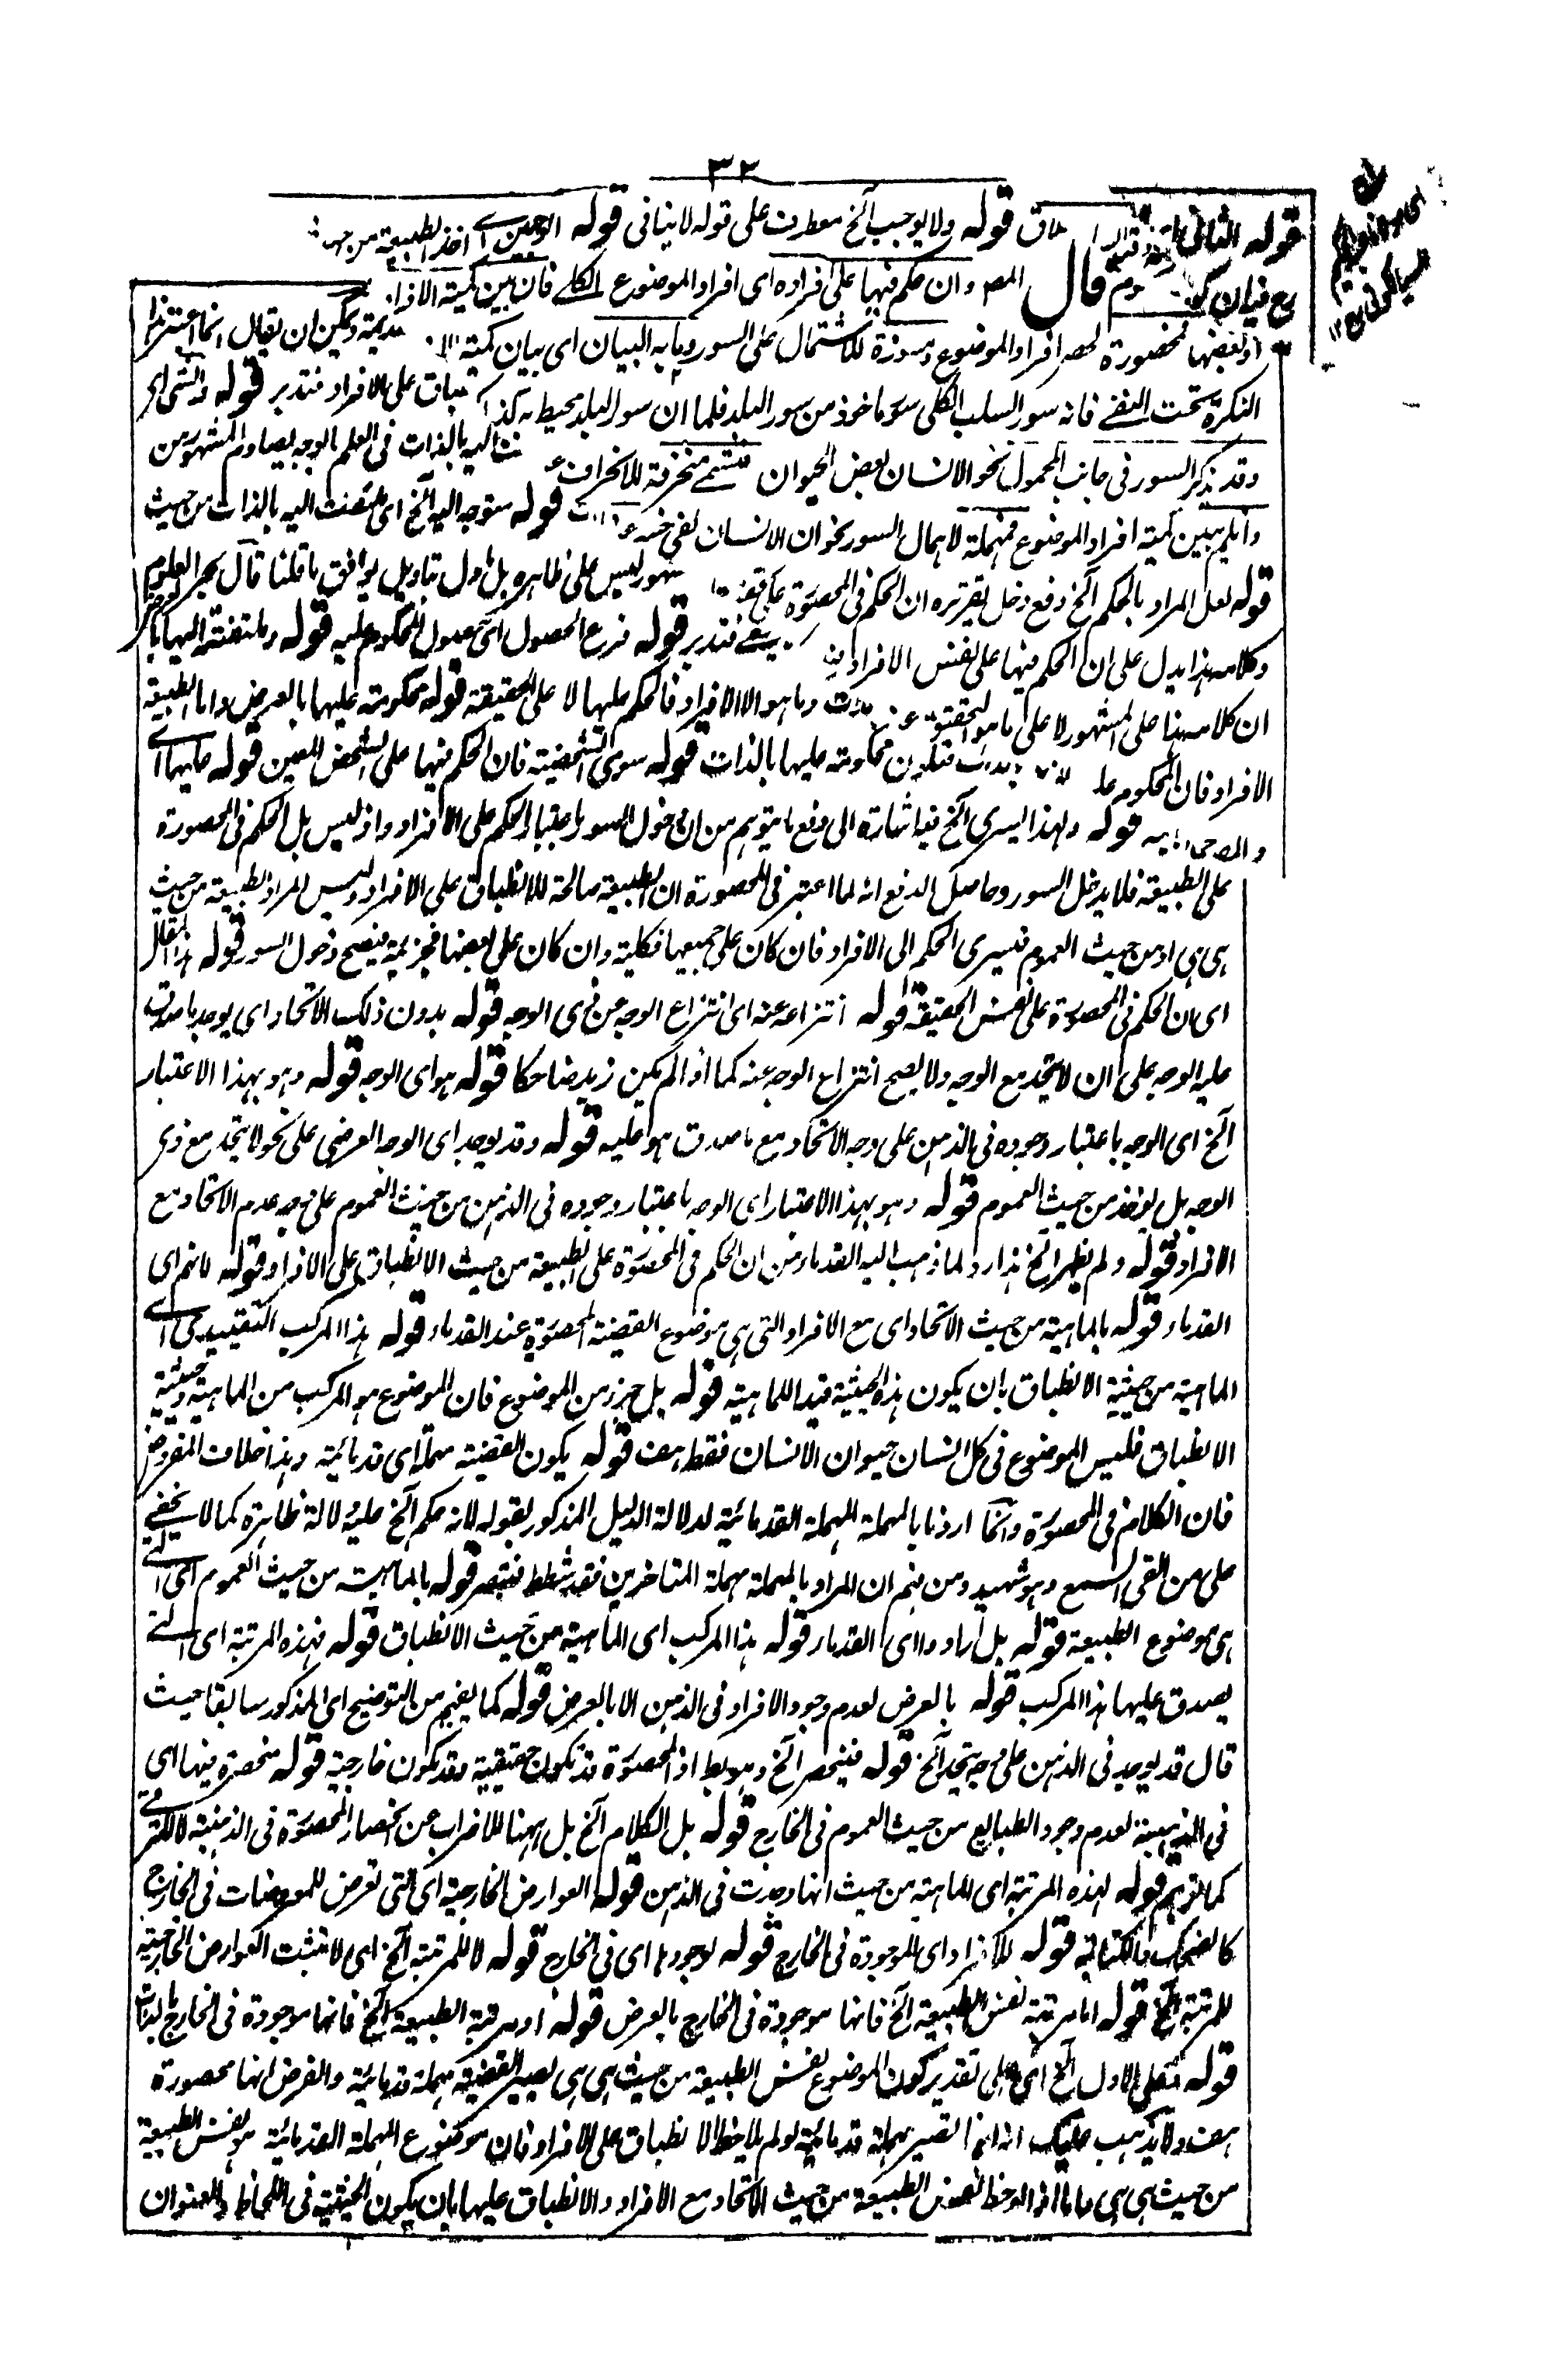 ٣٢
قوله الثانی قوله ولا يوجب آلخ معطوف علی قوله لا ينافی قوله الوجهين ای اخذ الطبيعة من حيث
قال المص وان حكم فيها علی افراده ای افراد الموضوع الكلے فان بين كمية الافراد
او بعضها فمحصورة لحصر افراد الموضوع ومسورة للاشتمال علی السور وما به البيان ای بيان كمية ويمكن ان يقال انما اعتبر
النكرة تحت النفے فانه سور السلب الكلی سور ماخوذ من سور البلد فكما ان سور البلد محيط به كذا علی الافراد فتدبر قوله
وقد يذكر السور فی جانب المحمول نحو الانسان بعض الحيوان فتسمے منحرفة للانحراف اليه بالذات فی العلم بالوجه يصادم المشهور من
وان لم يبين كمية افراد الموضوع فمهملة لاهمال السور نحو ان الانسان لفی خسر قوله متوجه اليه آلخ ای ملتفت اليه بالذات من حيث
قوله لعل المراد بالحكم آلخ دفع دخل تقريره ان الحكم فی المحصورة ليس علی ظاهره بل ماول بتاويل يوافق ما قلنا قال بحر العلوم
وكلامه هذا يدل علی ان الحكم فيها علی نفس الافراد فتدبر قوله فرع الحصول ای حصول المحكوم عليه قوله وملتفتة اليها
ان كلامه هذا علی المشهور لا علی ما هو التحقيق وما هو الا الافراد فالحكم عليها لا علی الحقيقة قوله محكومة عليها بالعرض واما الطبيعة
الافراد فان المحكوم فتكون محكومة عليها بالذات قوله سوی الشخصية فان الحكم فيها علی الشخص المعين قوله عليها ای
قوله ولهذا يسری آلخ فيه اشارة الی دفع ما يتوهم من ان دخول السور باعتبار الحكم علی الافراد واذ ليس بل الحكم فی المحصورة
علی الطبيعة فلا يدخل السور وحاصل الدفع انه لما اعتبر فی المحصورة ان الطبيعة صالحة للانطباق علی الافراد وليس المراد الطبيعة من حيث
هی هی او من حيث العموم فيسری الحكم الی الافراد فان كان علی جميعها فكلية وان كان علی بعضها فجزئية فيصح دخول السور قوله
ای ان الحكم فی المحصورة علی نفس الحقيقة قوله انتزاعه عنه ای انتزاع الوجه عن ذی الوجه قوله بدون ذلك الاتحاد ای يوجد ما صدق
عليه الوجه علی ان لا يتحد مع الوجه ولا يصح انتزاع الوجه عنه كما اذا لم يكن زيد ضاحكا قوله هو ای الوجه قوله وهو بهذا الاعتبار
آلخ ای الوجه باعتبار وجوده فی الذهن علی وجه الاتحاد مع ما صدق هو عليه قوله وقد يوجد ای الوجه العرضی علی نحو لا يتحد مع ذی
الوجه بل يوخذ من حيث العموم قوله وهو بهذا الاعتبار ای الوجه باعتبار وجوده فی الذهن من حيث العموم علی وجه عدم الاتحاد مع
الافراد قوله ولم يظهر آلخ هذا رد لما ذهب اليه القدماء من ان الحكم فی المحصورة علی الطبيعة من حيث الانطباق علی الافراد قوله لانهم ای
القدماء قوله بالماهية من حيث الاتحاد ای مع الافراد التی هی موضوع القضية المحصورة عند القدماء قوله هذا المركب التقييدی ای
الماهية من حيثية الانطباق بان يكون هذه الحيثية قيدا للماهية قوله بل جزء من الموضوع فان الموضوع هو المركب من الماهية وحيثية
الانطباق فليس الموضوع فی كل انسان حيوان الانسان فقط هف قوله يكون القضية مهملة ای قدمائية وهذا خلاف المفروض
فان الكلام فی المحصورة وانما اردنا بالمهملة المهملة القدمائية لدلالة الدليل المذكور بقوله لانه حكم آلخ عليه دلالة ظاهرة كما لا يخفے
علی من القی السمع وهو شهيد ومن فهم ان المراد بالمهملة مهملة المتاخرين فقد شطط فتبصر قوله بالماهية من حيث العموم ای التے
هی موضوع الطبيعة قوله بل ارادوا ای القدماء قوله هذا المركب ای الماهية من حيث الانطباق قوله فهذه المرتبة ای التے
يصدق عليها هذا المركب قوله بالعرض لعدم وجود الافراد فی الذهن الا بالعرض قوله كما يفهم من التوضيح ای المذكور سابقا حيث
قال قد يوجد فی الذهن علی وجه يتحد آلخ قوله فينحصر آلخ وهو بط اذ المحصورة قد تكون حقيقية وقد تكون خارجية قوله منحصرة فيها ای
فی الذهنية لعدم وجود الطبائع من حيث العموم فی الخارج قوله بل الكلام آلخ بل ههنا للاضراب عن انحصار المحصورة فی الذهنية لا للترقے
كما توهم قوله لهذه المرتبة ای للماهية من حيث انها وجدت فی الذهن قوله العوارض الخارجية ای التی تعرض للمعروضات فی الخارج
كالضحك والكتابة قوله للافراد ای الموجودة فی الخارج قوله لوجودها ای فی الخارج قوله لا للمرتبة آلخ ای لا تثبت العوارض الخارجية
للمرتبة آلخ قوله اما مرتبة نفس الطبيعة آلخ فانها موجودة فی الخارج بالعرض قوله او مرتبة الطبيعة آلخ فانها موجودة فی الخارج بالذات
قوله فعلی الاول آلخ ای علی تقدير كون الموضوع نفس الطبيعة من حيث هی هی يصير القضية مهملة قدمائية والفرض انها محصورة
هف ولا يذهب عليك انه انما تصير مهملة قدمائية لو لم يلاحظ الانطباق علی الافراد فان موضوع المهملة القدمائية هو نفس الطبيعة
من حيث هی هی واما اذا لوحظ نفس الطبيعة من حيث الاتحاد مع الافراد والانطباق عليها بان يكون الحيثية فی اللحاظ والعنوان